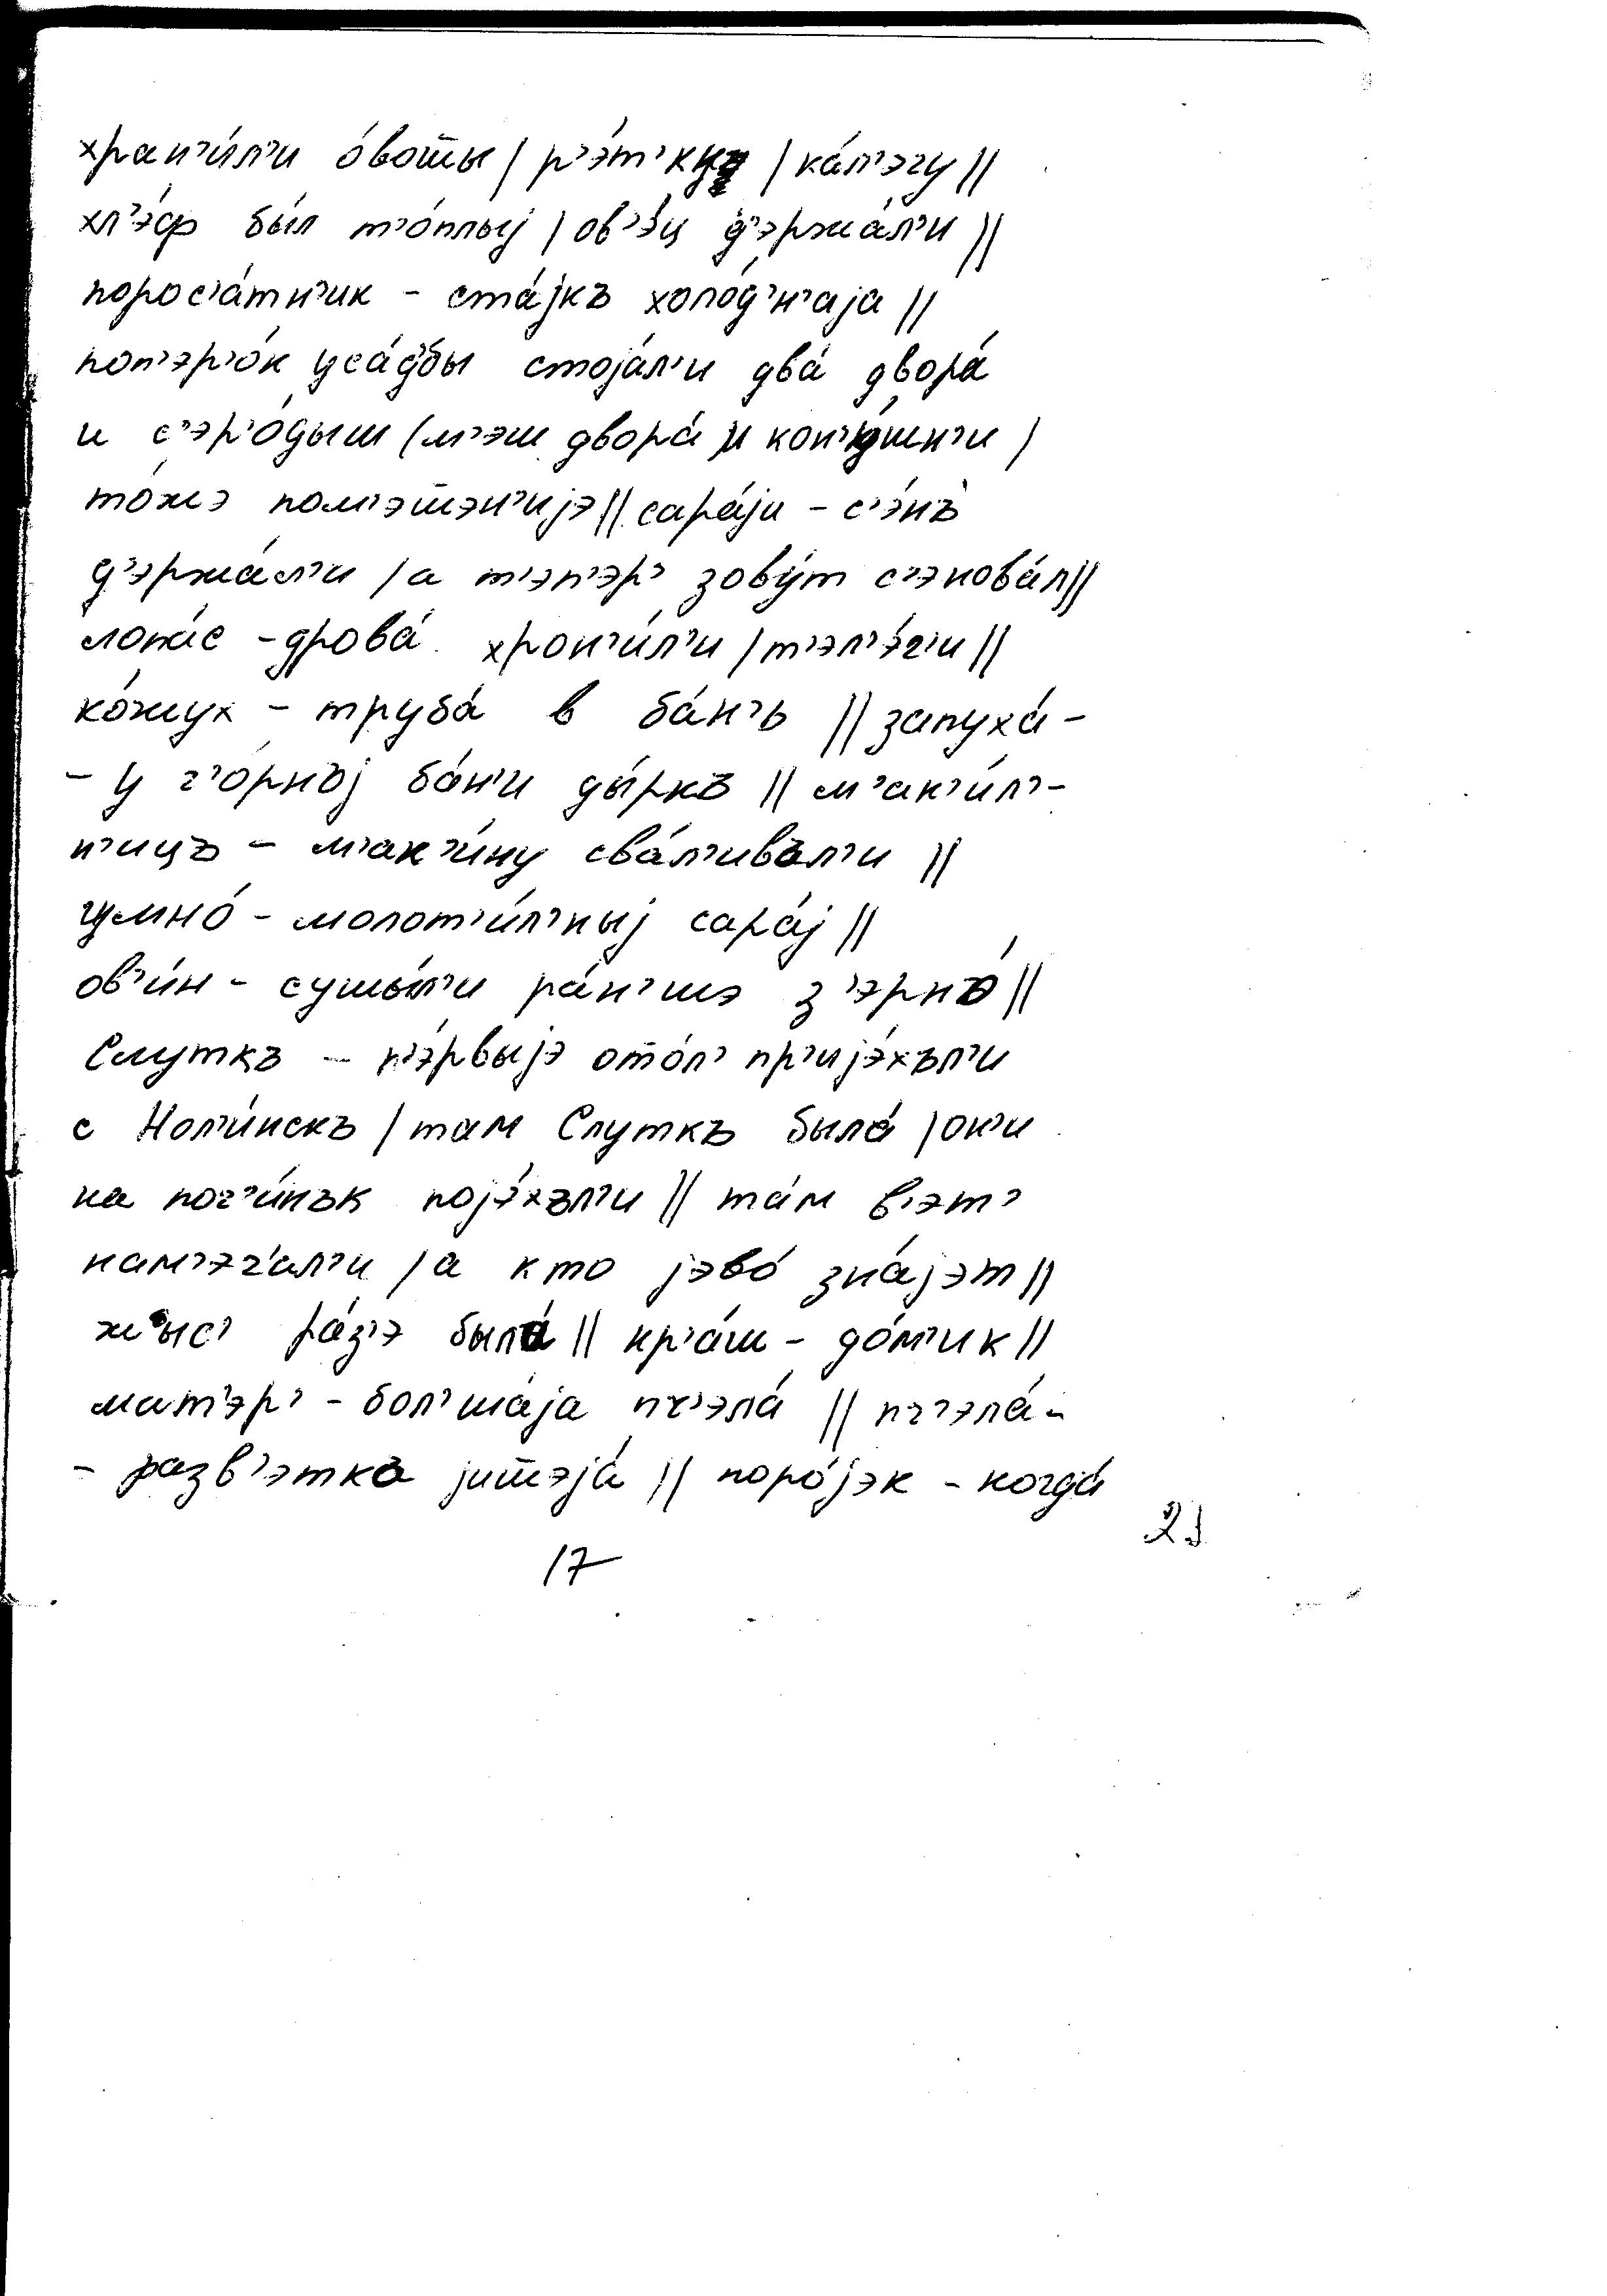 хран'и́л'и о́вош̅ы | р'э́т'ку | ка́л'эгу ||
хл'э́ф бы́л т'о́плыј | ов'э́ц д'эржа́л'и ||
порос'а́тн'ик - ста́јкъ холо́д'н'аја ||
поп'эр'о́к уса́д'бы стоја́л'и два́ двора́
и с'эр'о́дыш (м'эш двора́ и кон'у́шн'и |
то́жэ пом'эш̅эн'ијэ || сара́ји - с'э́нъ
д'эржа́л'и | а т'эп'эр' зову́т с'энова́л ||
лопа́с - дрова́ хрон'и́л'и | т'эл'э́г'и ||
ко́жух - труба́ в ба́н'ь || запуха́ -
- у ч'о́рнъј ба́н'и ды́ркъ || м'ак'и́л'-
н'ицъ - м'ак'и́ну сва́л'ивъл'и ||
гумно́ - молот'и́л'ныј сара́ј ||
ов'и́н - сушы́л'и ра́н'шэ з'эрно́ ||
Слуткъ - п'э́рвыјэ ото́л' пр'ијэ́хъл'и
с Нол'и́нскъ | там Слуткъ была́ | он'и
на поч'и́нък појэ́хъл'и || та́м в'эт'
нам'эч'ал'и | а кто јэво́ зна́јэт ||
жыс' ра́з'э была́ || кр'а́ш - до́м'ик ||
мат'эр' - бол'ша́ја пч'эла́ || пч'эла́ -
- разв'этка јиш̅эја́ || поро́јэк - когда́
21
17